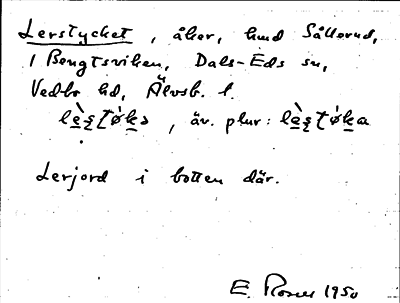 Lerstycket, åker, hmd Sålerud,
i Bengtsviken, Dals-Eds sn,
Vedbo hd, Älvsb. l.
lὲʂʈø̀kə, äv. plur: lὲʂʈø̀ka
Lerjord i botten där.
E. Rosell 1950